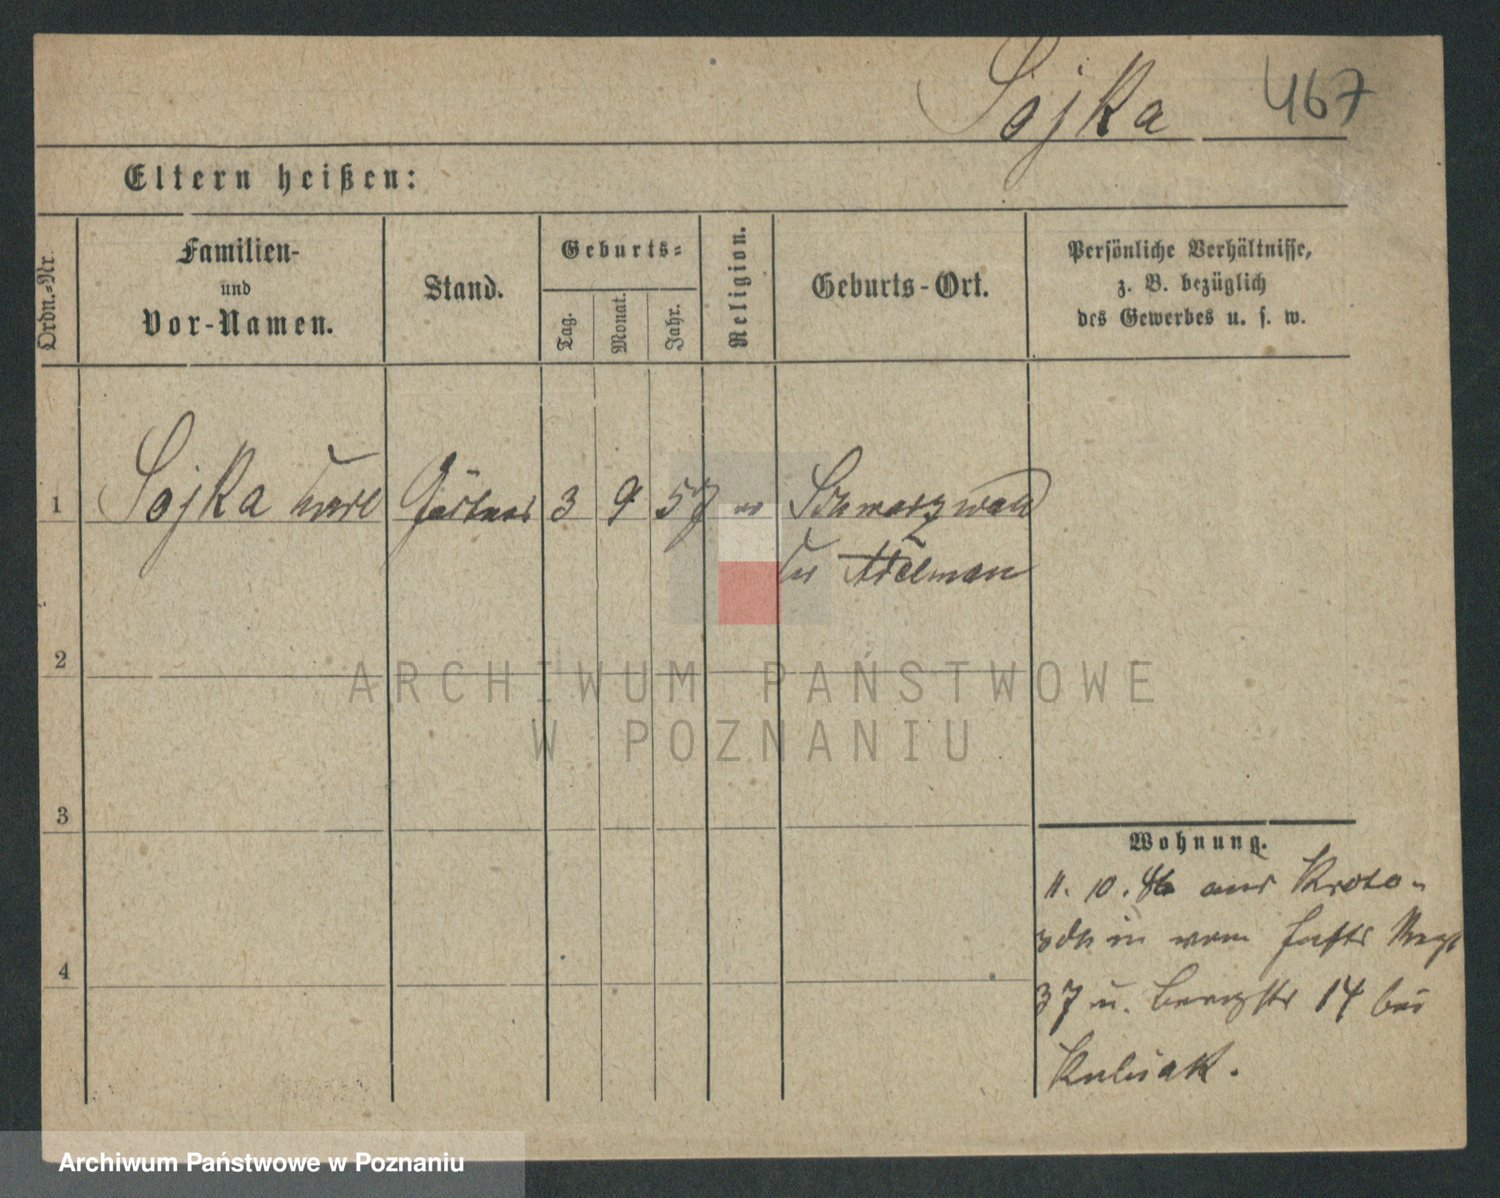 Sojka 467
Eltern heißen:
Ordn.-Nr.
Familien-
und
Vor-Namen.
Stand.
Geburts-
Tag.
Monat.
Jahr.
Religion.
Geburts-Ort.
Persönliche Verhältnisse,
z. B. bezüglich
des Gewerbes u. s. w.
1 Sojka Karl Gärtner 3 9 57 Schwarzwald
Kr Adelnau
2
3
4
Wohnung.
11. 10. 86 aus Kroto-
schin vom Regt
37 n. Bergstr 14 bei
Kubiak.
ARCHIWUM PAŃSTWOWE
W POZNANIU
Archiwum Państwowe w Poznaniu